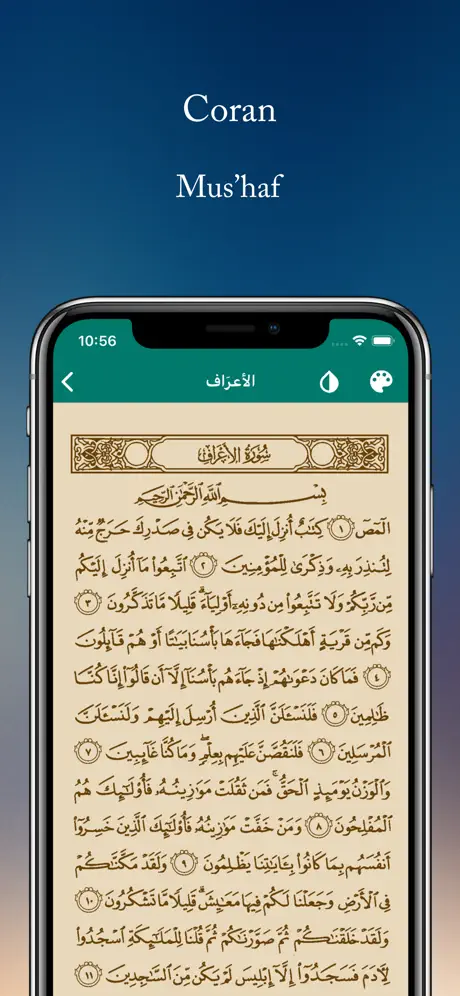 Coran
Mus’haf
10:56
الأعرَاف
سُورَةُ الأَعْرَافِ
بِسْمِ اللَّهِ الرَّحْمَٰنِ الرَّحِيمِ
الٓمٓصٓ ١ كِتَٰبٌ أُنزِلَ إِلَيْكَ فَلَا يَكُن فِي صَدْرِكَ حَرَجٌ مِّنْهُ
لِتُنذِرَ بِهِۦ وَذِكْرَىٰ لِلْمُؤْمِنِينَ ٢ ٱتَّبِعُوا۟ مَآ أُنزِلَ إِلَيْكُم
مِّن رَّبِّكُمْ وَلَا تَتَّبِعُوا۟ مِن دُونِهِۦٓ أَوْلِيَآءَ ۗ قَلِيلًا مَّا تَذَكَّرُونَ ٣
وَكَم مِّن قَرْيَةٍ أَهْلَكْنَٰهَا فَجَآءَهَا بَأْسُنَا بَيَٰتًا أَوْ هُمْ قَآئِلُونَ
٤ فَمَا كَانَ دَعْوَىٰهُمْ إِذْ جَآءَهُم بَأْسُنَآ إِلَّآ أَن قَالُوٓا۟ إِنَّا كُنَّا
ظَٰلِمِينَ ٥ فَلَنَسْـَٔلَنَّ ٱلَّذِينَ أُرْسِلَ إِلَيْهِمْ وَلَنَسْـَٔلَنَّ
ٱلْمُرْسَلِينَ ٦ فَلَنَقُصَّنَّ عَلَيْهِم بِعِلْمٍ ۖ وَمَا كُنَّا غَآئِبِينَ ٧
وَٱلْوَزْنُ يَوْمَئِذٍ ٱلْحَقُّ ۚ فَمَن ثَقُلَتْ مَوَٰزِينُهُۥ فَأُو۟لَٰٓئِكَ هُمُ
ٱلْمُفْلِحُونَ ٨ وَمَنْ خَفَّتْ مَوَٰزِينُهُۥ فَأُو۟لَٰٓئِكَ ٱلَّذِينَ خَسِرُوٓا۟
أَنفُسَهُم بِمَا كَانُوا۟ بِـَٔايَٰتِنَا يَظْلِمُونَ ٩ وَلَقَدْ مَكَّنَّٰكُمْ
فِي ٱلْأَرْضِ وَجَعَلْنَا لَكُمْ فِيهَا مَعَٰيِشَ ۗ قَلِيلًا مَّا تَشْكُرُونَ ١٠
وَلَقَدْ خَلَقْنَٰكُمْ ثُمَّ صَوَّرْنَٰكُمْ ثُمَّ قُلْنَا لِلْمَلَٰٓئِكَةِ ٱسْجُدُوا۟
لِـَٔادَمَ فَسَجَدُوٓا۟ إِلَّآ إِبْلِيسَ لَمْ يَكُن مِّنَ ٱلسَّٰجِدِينَ ١١